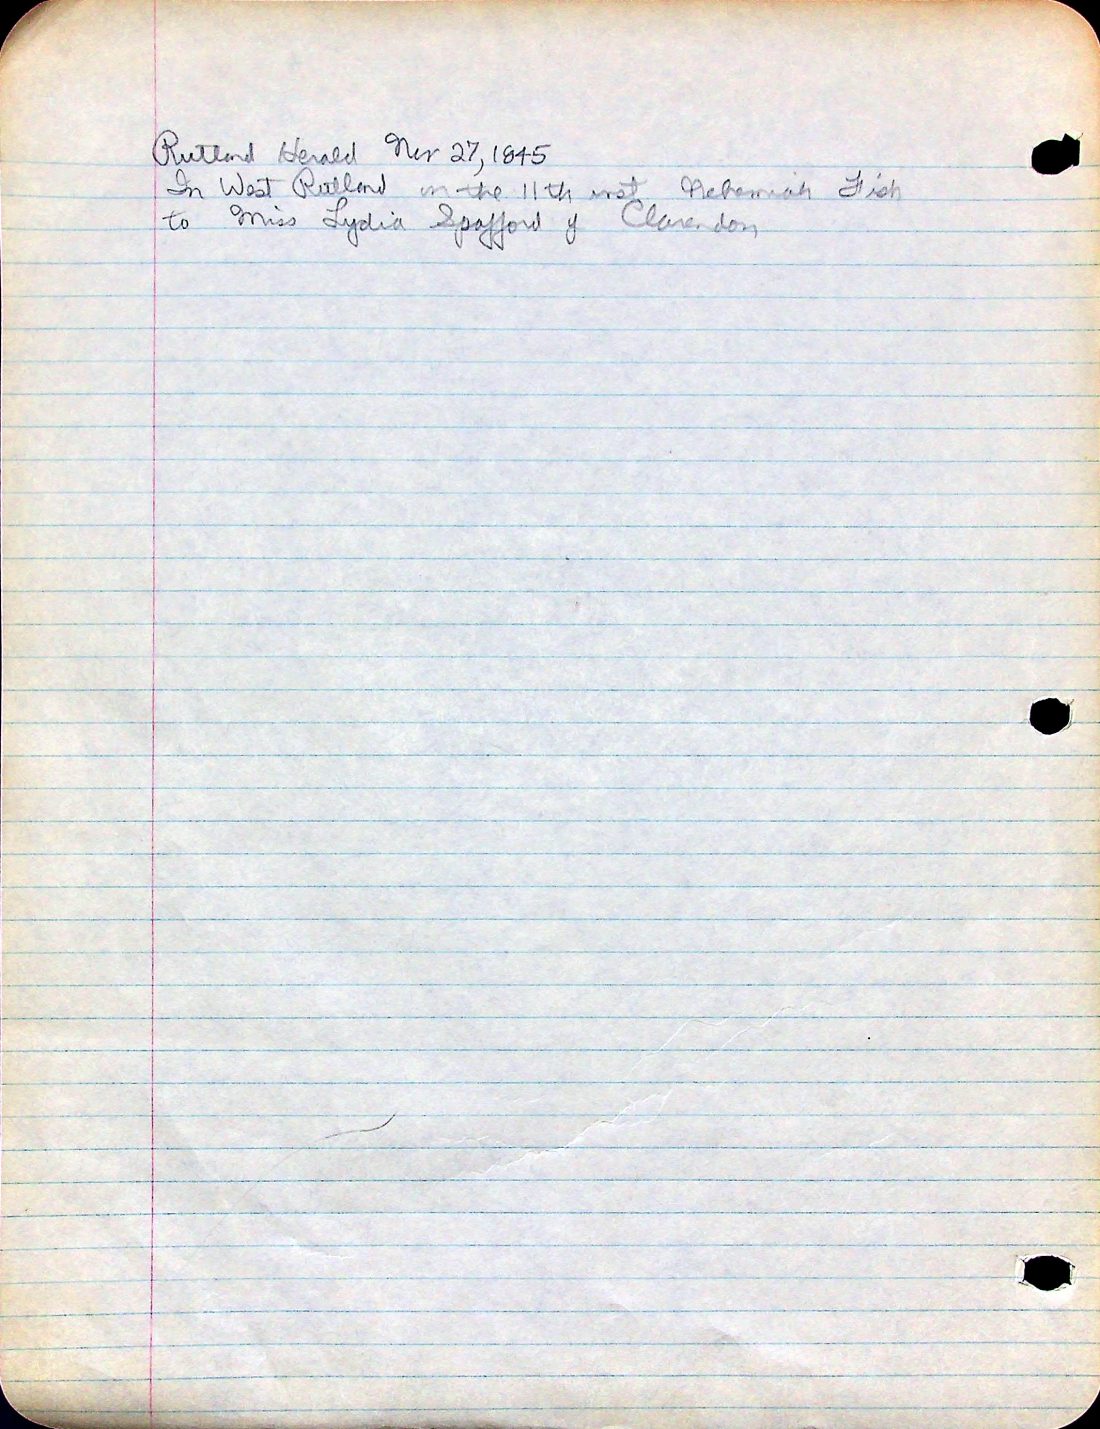 Rutland Herald Nov 27, 1845
In West Rutland on the 11th inst Nehemiah Fish
to Miss Lydia Spafford of Clarendon